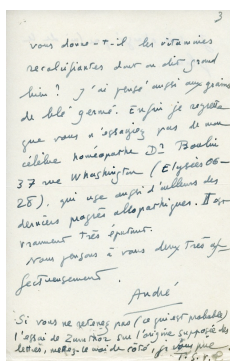 3
vous donne-t-il les vitamines
recalcifiantes dont on dit grand
bien ? J'ai pensé aussi aux grains
de blé germé. Enfin je regrette
que vous n'essayiez pas de mon
célèbre homéopathe Dr
37 rue Whashington (Elysées 06-
28), qui use aussi d'ailleurs des
derniers progrès allopathiques. Il est
vraiment très épatant.
Nous pensons à vous deux très af-
fectueusement.
André
Si vous ne retenez pas (ce qui est probable)
l'essai de Zumthor sur l'origine supposée des
lettres, mettez-le moi de côté, je vous prie
T.S.V.P.